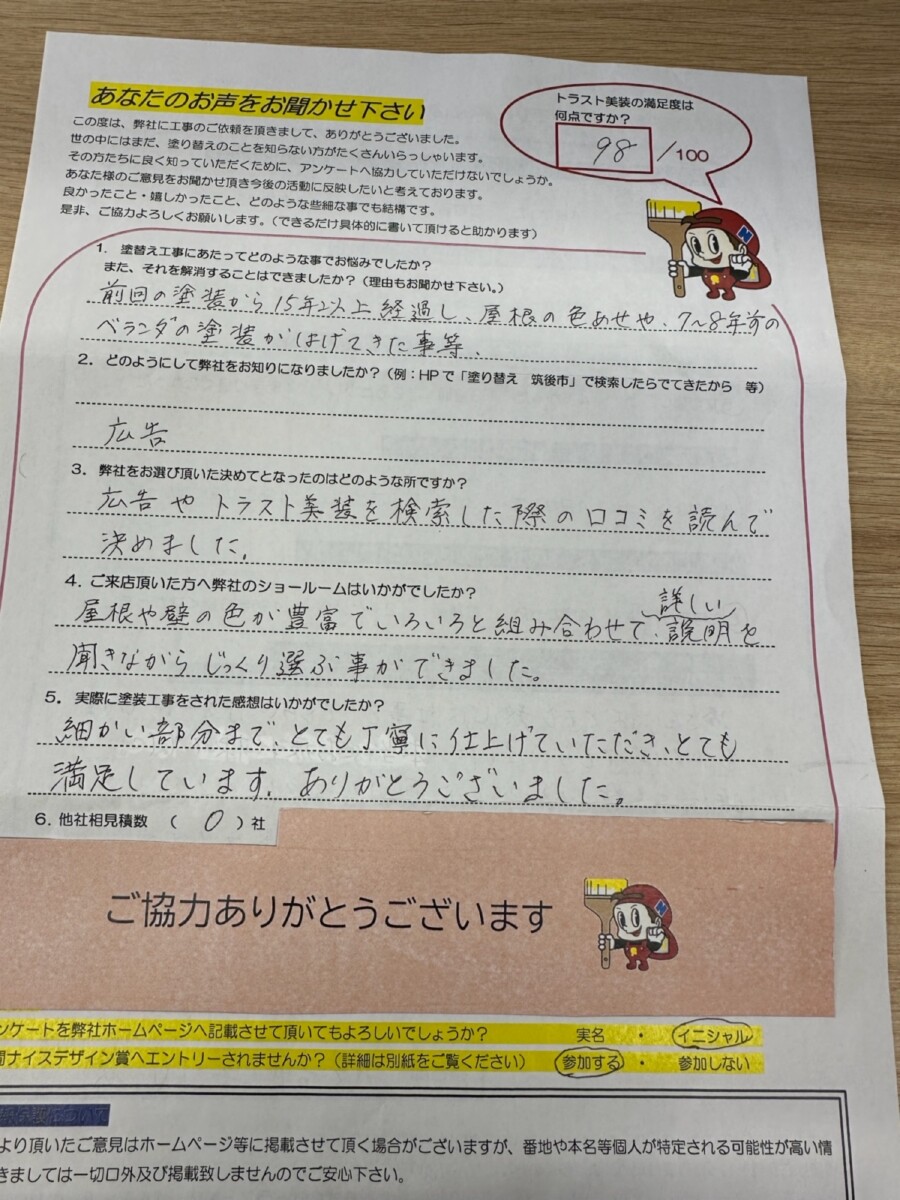 あなたのお声をお聞かせ下さい
トラスト美装の満足度は
何点ですか？
98 /100
この度は、弊社に工事のご依頼を頂きまして、ありがとうございました。
世の中にはまだ、塗り替えのことを知らない方がたくさんいらっしゃいます。
その方たちに良く知っていただくために、アンケートへ協力していただけないでしょうか。
あなた様のご意見をお聞かせ頂き今後の活動に反映したいと考えております。
良かったこと・嬉しかったこと、どのような些細な事でも結構です。
是非、ご協力よろしくお願いします。（できるだけ具体的に書いて頂けると助かります）
1. 塗替え工事にあたってどのような事でお悩みでしたか？
また、それを解消することはできましたか？（理由もお聞かせ下さい。）
前回の塗装から15年以上経過し、屋根の色あせや、7〜8年前の
ベランダの塗装がはげてきた事等、
2. どのようにして弊社をお知りになりましたか？（例：HPで「塗り替え 筑後市」で検索したらでてきたから 等）
広告
3. 弊社をお選び頂いた決めてとなったのはどのような所ですか？
広告やトラスト美装を検索した際の口コミを読んで
決めました。
4. ご来店頂いた方へ弊社のショールームはいかがでしたか？
屋根や壁の色が豊富でいろいろと組み合わせて、詳しい説明を
聞きながらじっくり選ぶ事ができました。
5. 実際に塗装工事をされた感想はいかがでしたか？
細かい部分まで、とても丁寧に仕上げていただき、とても
満足しています。ありがとうございました。
6. 他社相見積数 （ 0 ）社
ご協力ありがとうございます
ンケートを弊社ホームページへ記載させて頂いてもよろしいでしょうか？ 実名 ・ イニシャル
間ナイスデザイン賞へエントリーされませんか？（詳細は別紙をご覧ください） 参加する ・ 参加しない
について
より頂いたご意見はホームページ等に掲載させて頂く場合がございますが、番地や本名等個人が特定される可能性が高い情
きましては一切口外及び掲載致しませんのでご安心下さい。